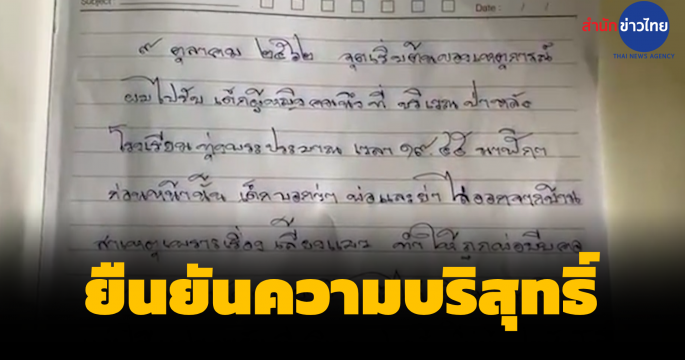 Subject
Date : / /
สำนักข่าวไทย
THAI NEWS AGENCY
๙ ตุลาคม ๒๕๖๒ จุดเริ่มต้นของเหตุการณ์
ผมไปรับ เด็กผู้หญิงคนนึง ที่ บริเวณป่าหลัง
โรงเรียน ประมาณ เวลา ๑๙.๔๕ นาฬิกา
ก่อนหน้านั้น เด็กบอกว่า พ่อและย่า ไล่ออกจากบ้าน
สาเหตุเพราะเรื่อง เลี้ยงแมว ทำให้ถูกพ่อ
ยืนยันความบริสุทธิ์